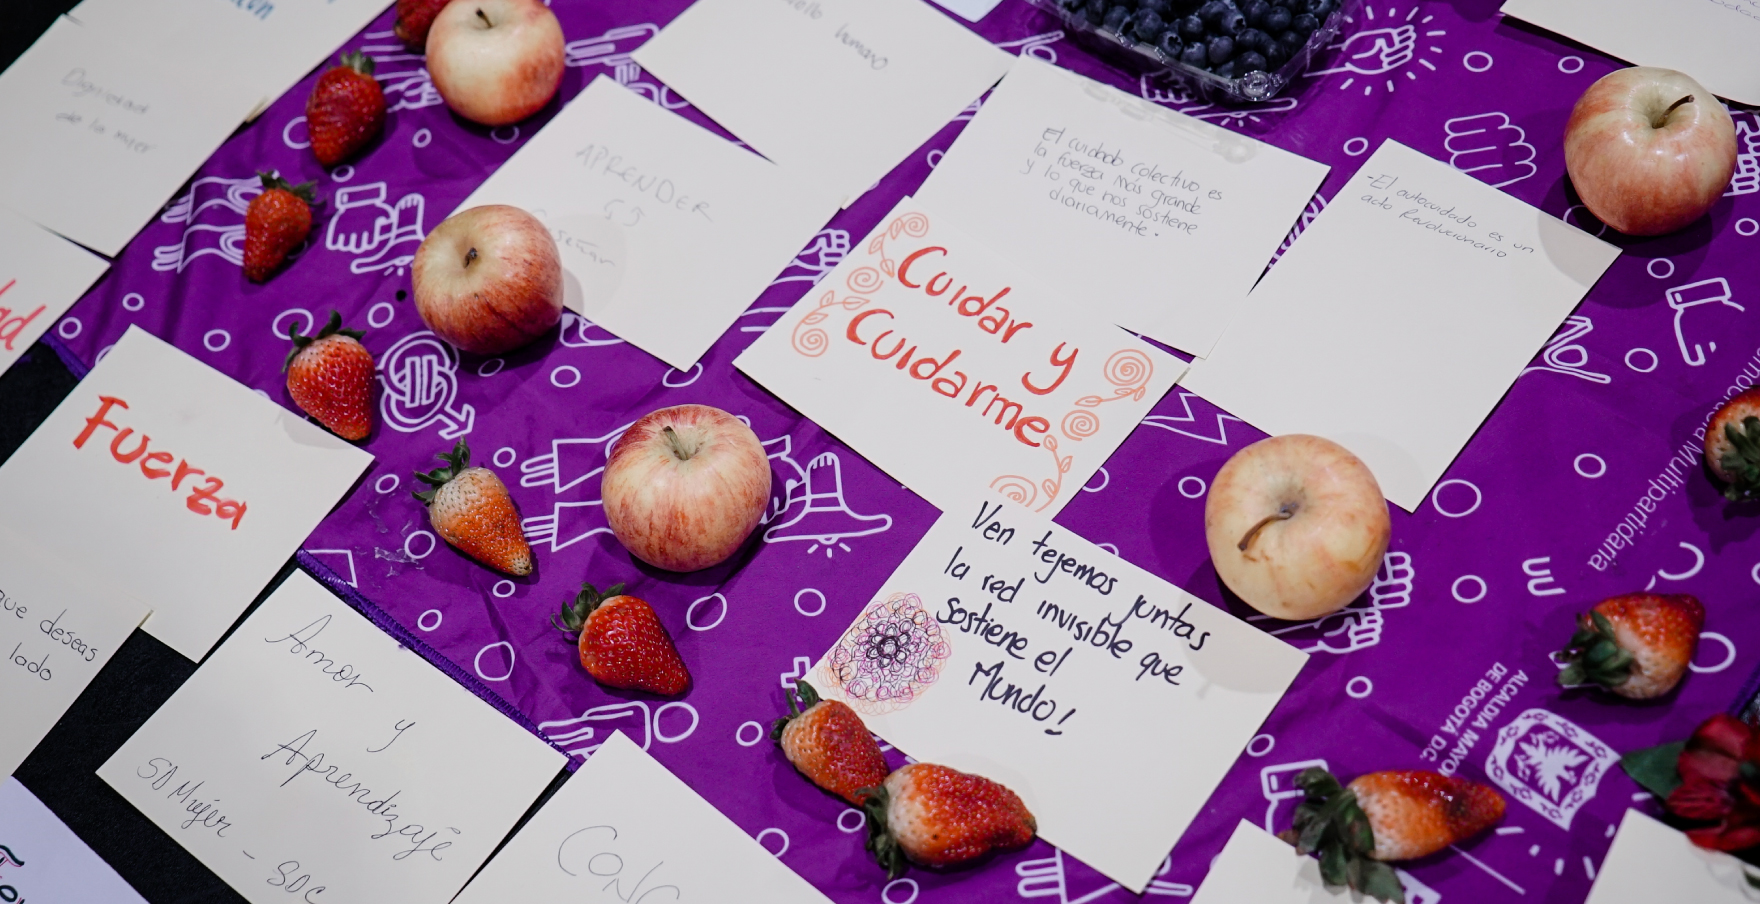 Dignidad
de la mujer
humano
APRENDER
El cuidado colectivo es
la fuerza más grande
y lo que nos sostiene
diariamente.
-El autocuidado es un
acto Revolucionario
Cuidar y
Cuidarme
Fuerza
Ven tejemos juntas
la red invisible que
Sostiene el
Mundo!
que deseas
lado
Amor
y
Aprendizaje
SD Mujer - SDC
Multipartidaria
ALCALDÍA MAYOR
DE BOGOTÁ D.C.